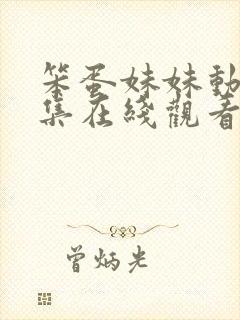 笨蛋妹妹動
集在綫觀看
曾炳光